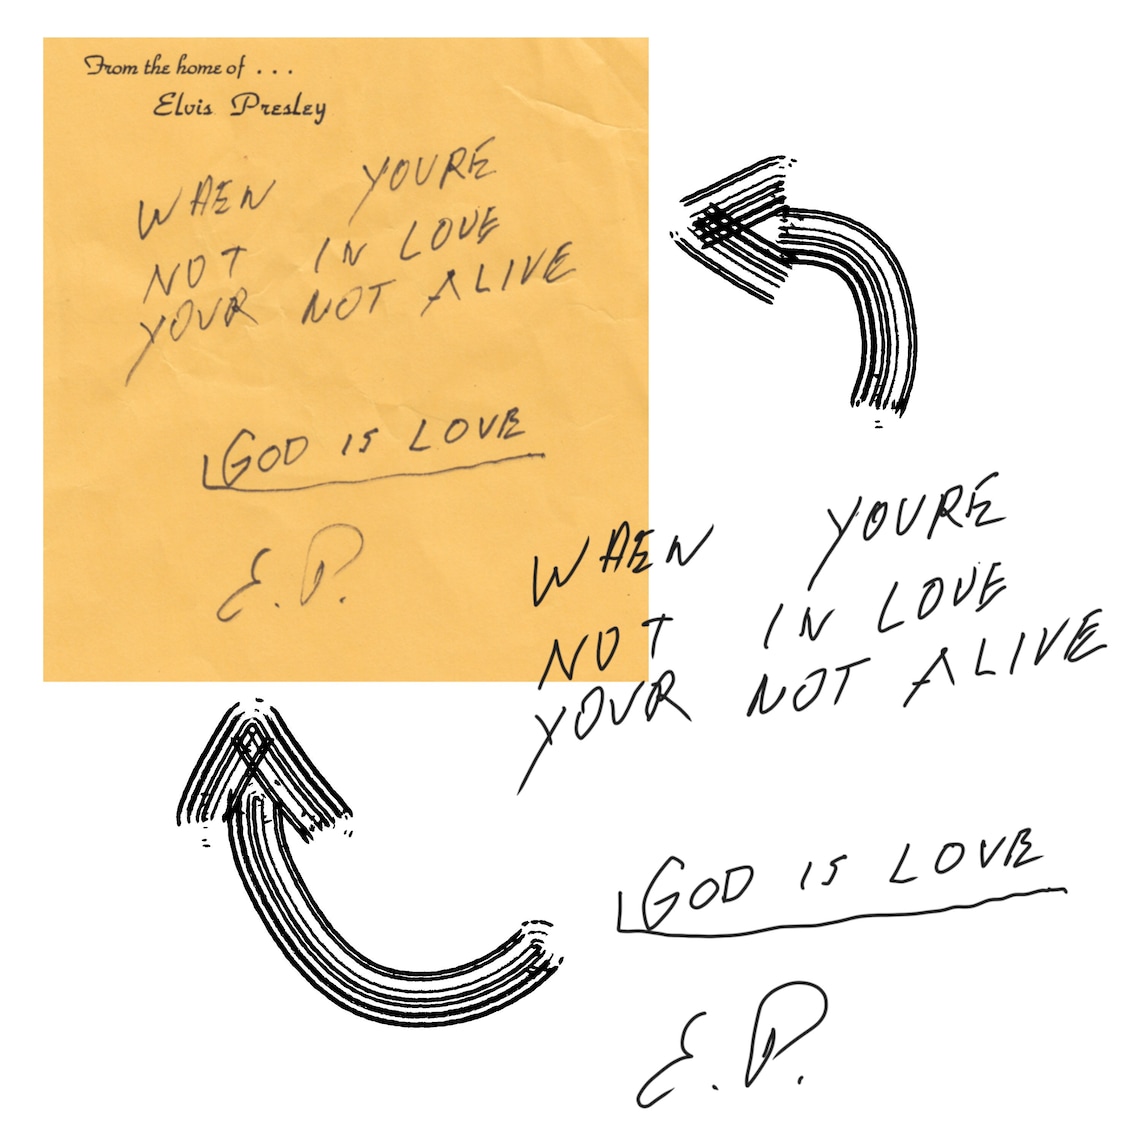 From the home of . . .
Elvis Presley
WHEN YOURE
NOT IN LOVE
YOUR NOT ALIVE
GOD IS LOVE
E.P.
WHEN YOURE
NOT IN LOVE
YOUR NOT ALIVE
GOD IS LOVE
E.P.